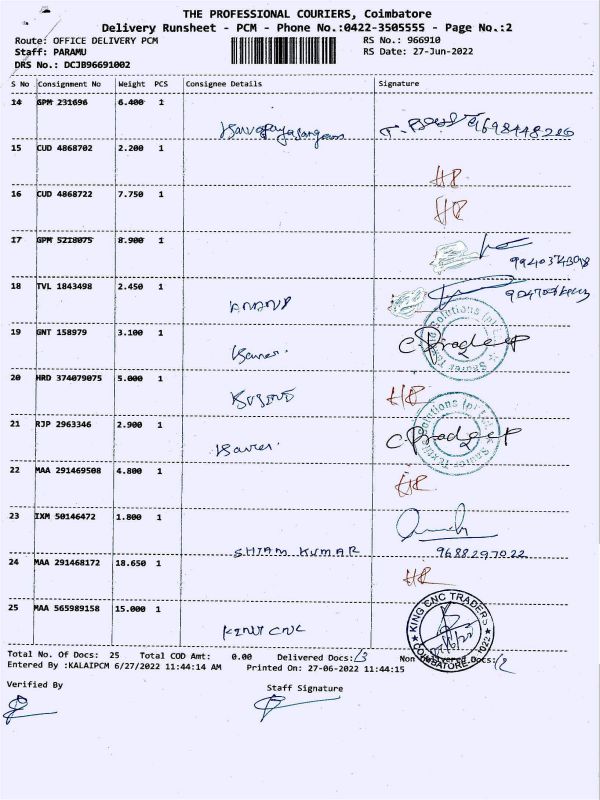 THE PROFESSIONAL COURIERS, Coimbatore
Delivery Runsheet - PCM - Phone No.:0422-3505555 - Page No.:2
Route: OFFICE DELIVERY PCM RS No.: 966910
Staff: PARAMU RS Date: 27-Jun-2022
DRS No.: DCJB96691002
S No Consignment No Weight PCS Consignee Details Signature
14 GPM 231696 6.400 1
15 CUD 4868702 2.200 1
HR
16 CUD 4868722 7.750 1
HR
17 GPM 5218075 8.900 1
18 TVL 1843498 2.450 1
ANAND
19 GNT 158979 3.100 1
C Pradeep
20 HRD 374079075 5.000 1
HR
21 RJP 2963346 2.900 1
C Pradeep
22 MAA 291469508 4.800 1
HR
23 IXM 50146472 1.800 1
SHIAM KUMAR 9688297022
24 MAA 291468172 18.650 1
HR
25 MAA 565989158 15.000 1
KING CNC
KING CNC TRADERS
COIMBATORE
Total No. Of Docs: 25 Total COD Amt: 0.00 Delivered Docs: 13 Non Delivered Docs: 12
Entered By :KALAIPCM 6/27/2022 11:44:14 AM Printed On: 27-06-2022 11:44:15
Verified By Staff Signature